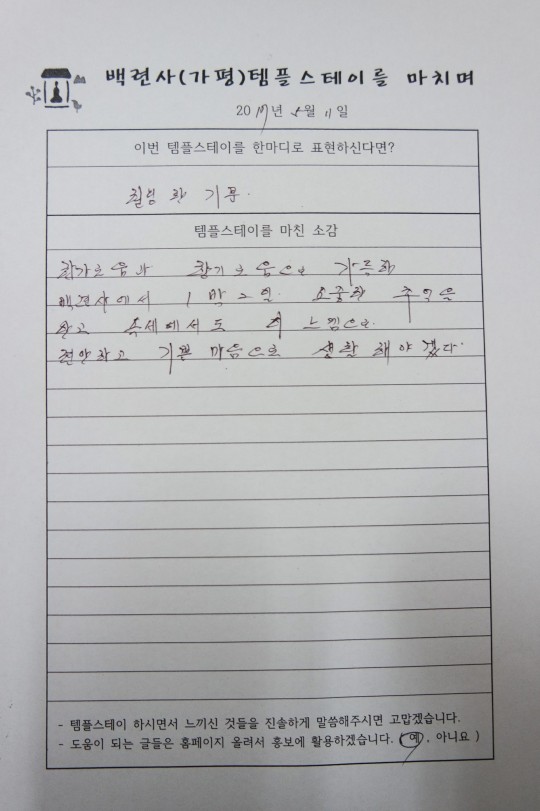 백련사(가평)템플스테이를 마치며
2017년 5월 11일
이번 템플스테이를 한마디로 표현하신다면?
기분.
템플스테이를 마친 소감
한가로움과 향기로움으로 가득한
백련사에서 1박2일. 소중한 추억을
담고 속세에서도 이 느낌으로.
편안하고 기쁜 마음으로 생활 해야겠다.
- 템플스테이 하시면서 느끼신 것들을 진솔하게 말씀해주시면 고맙겠습니다.
- 도움이 되는 글들은 홈페이지 올려서 홍보에 활용하겠습니다. ( 예, 아니요 )